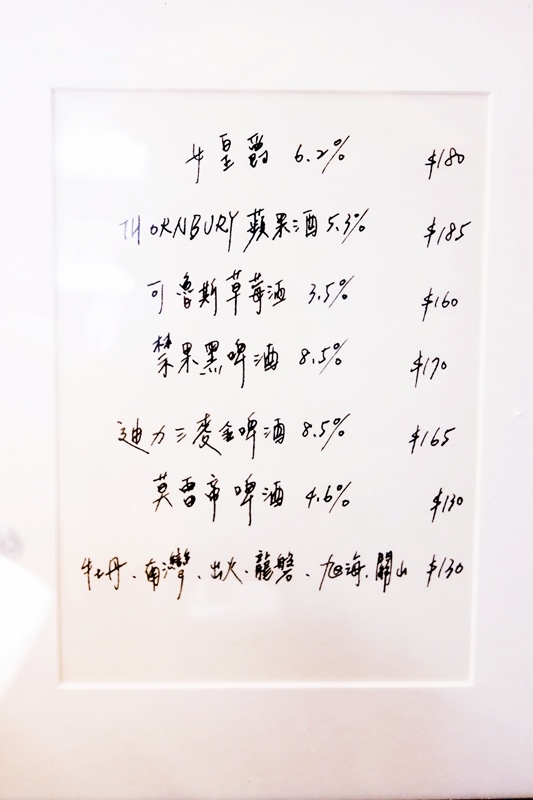 女皇爵 6.2% $180
THORNBURY 蘋果酒 5.3% $185
可魯斯草莓酒 3.5% $160
禁果黑啤酒 8.5% $170
迪力三麥金啤酒 8.5% $165
莫雷帝啤酒 4.6% $130
牡丹、南灣、出火、龍磐、旭海、關山 $130